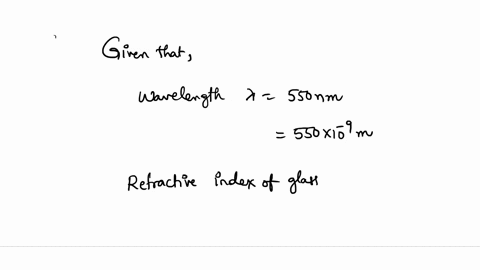 Given that,
Wavelength λ = 550nm
= 550×10⁻⁹m
Refractive index of glass